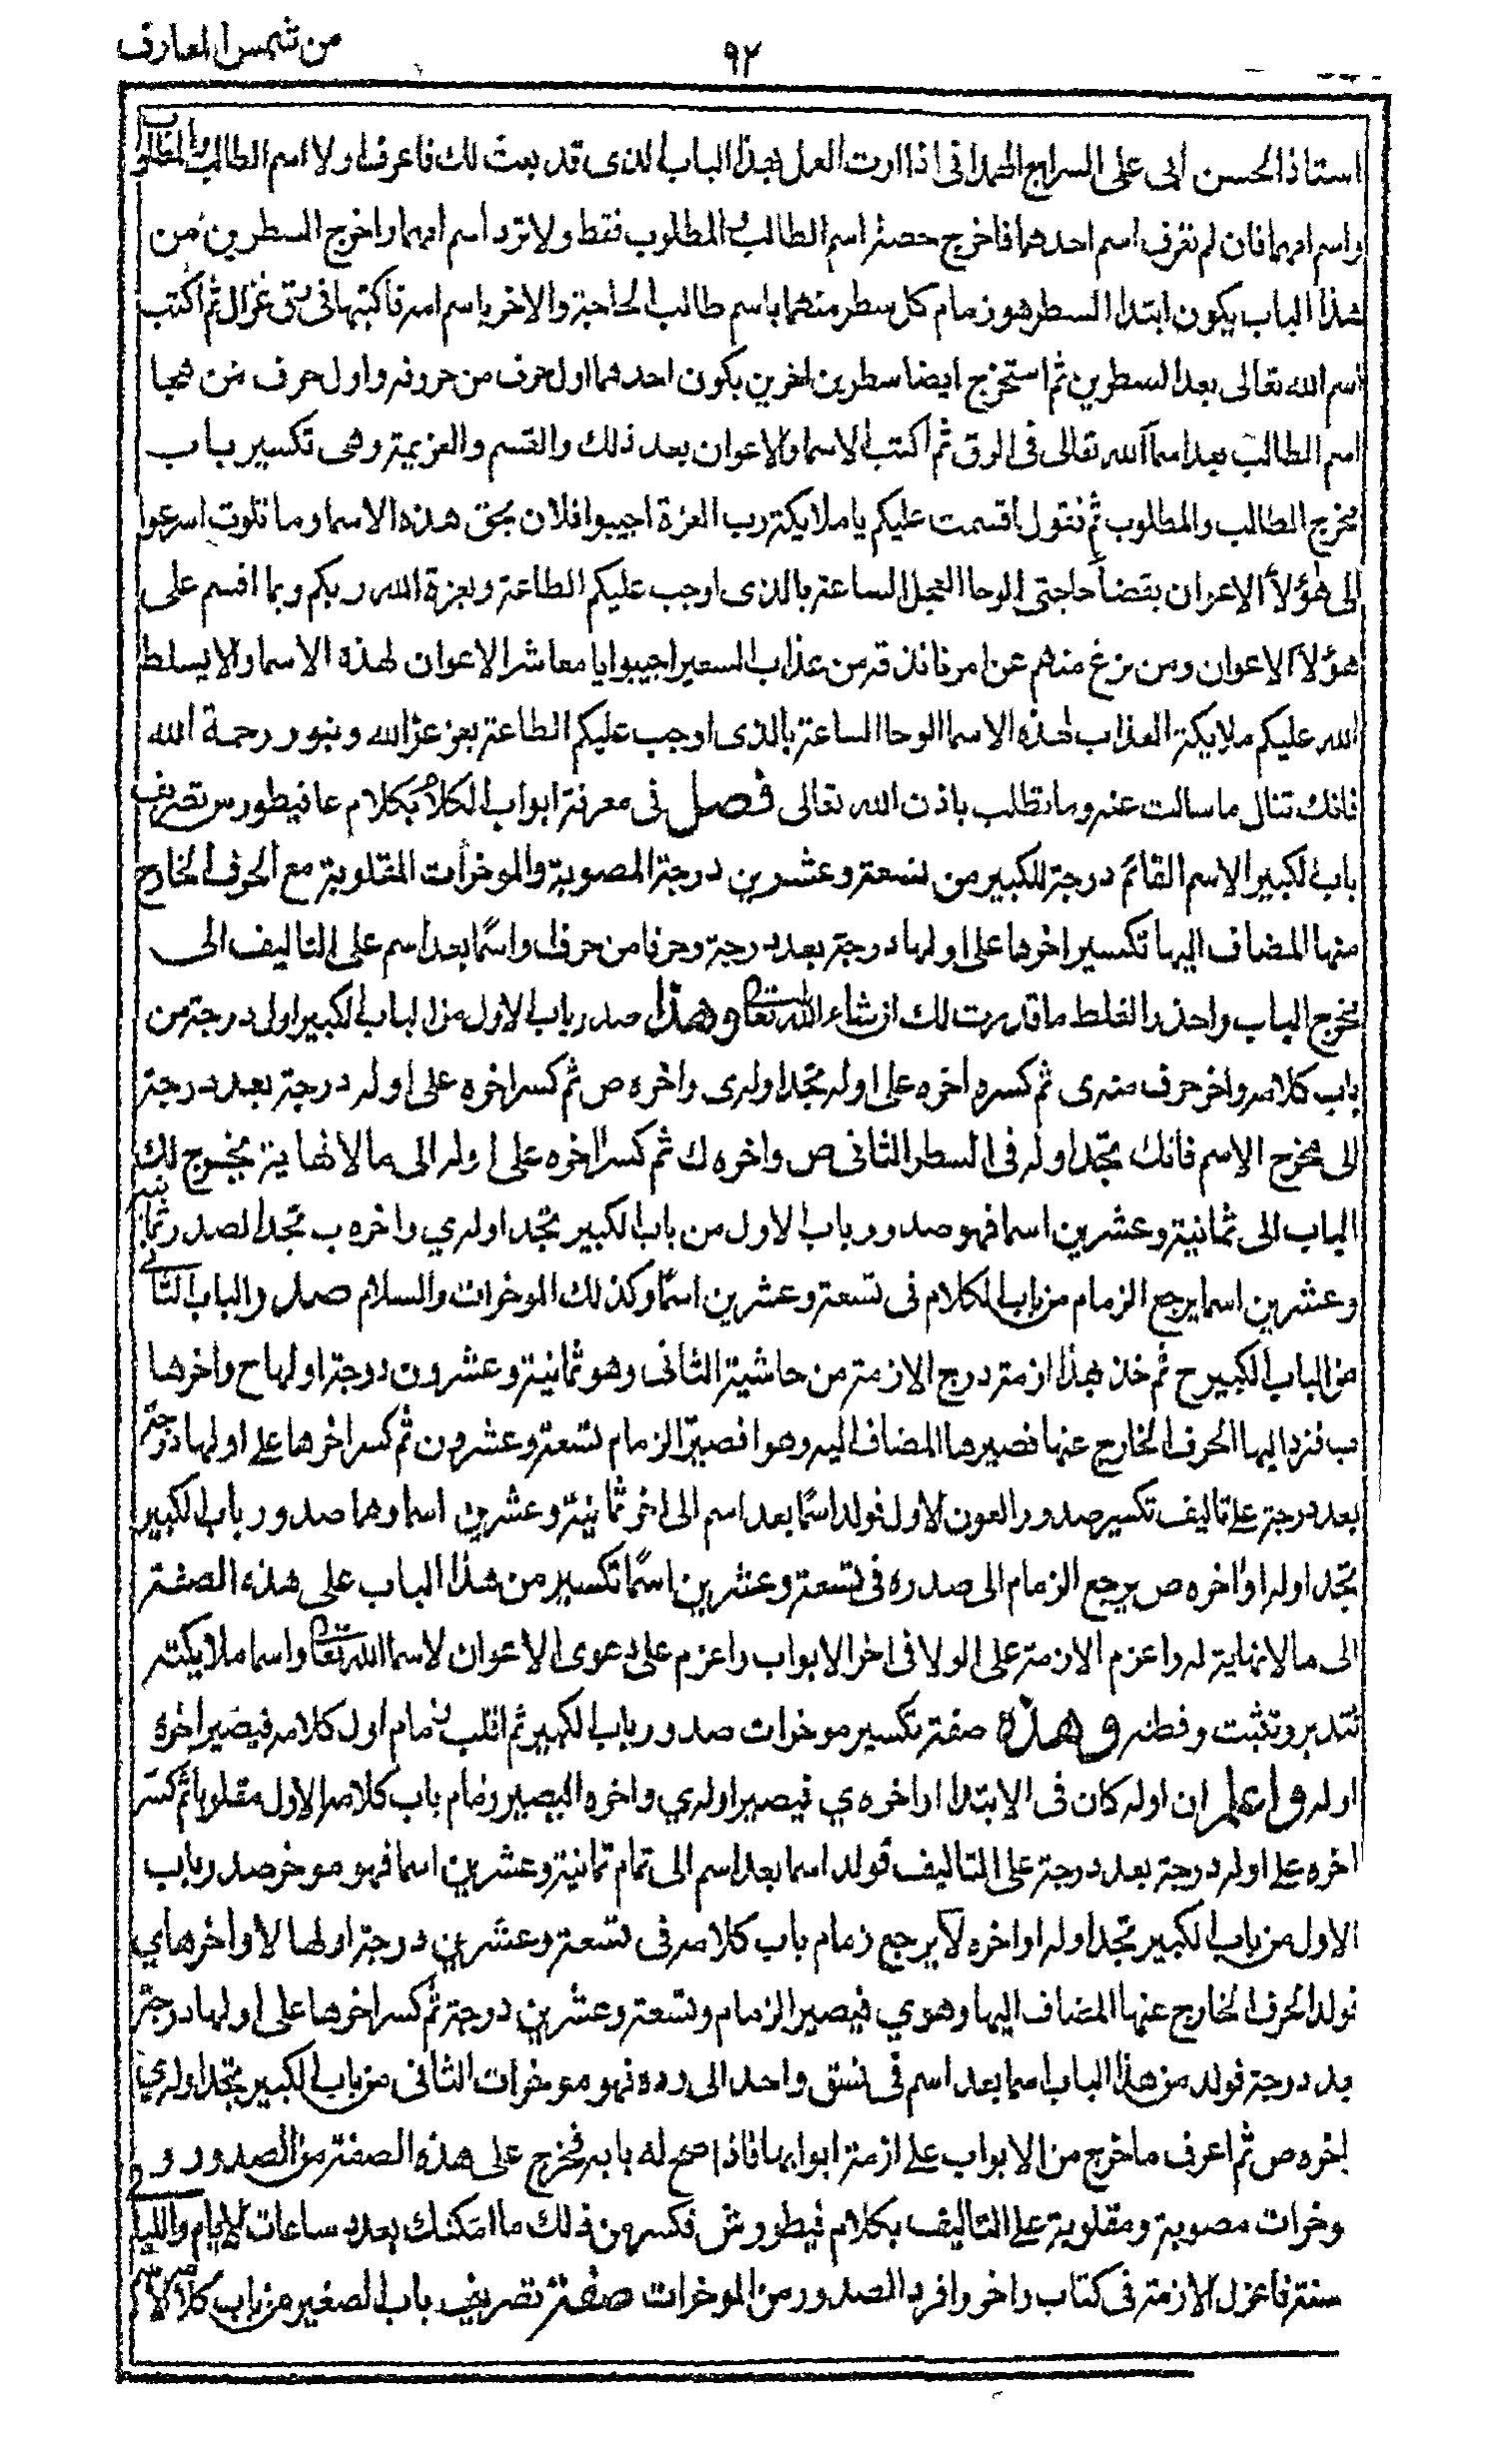 من شمس المعارف
٩٢
استاذ الحسن أبى على السراج الهمدانى اذا اردت العمل بهذا الباب الذى قد بعث لك فاعرف اولا اسم الطالب والمطلوب
واسم امهما فان لم تعرف اسم احدهما فاخرج اسم الطالب والمطلوب فقط ولا ترد اسم امهما واخرج السطرين من
هذا الباب يكون ابتدا السطر هو زمام كل سطر منهما باسم طالب الحاجة والاخر باسم امه فاكتبها فى رق غزال ثم اكتب
اسم الله تعالى بعد السطرين ثم استخرج ايضا سطرين اخرين يكون احدهما اول حرف من حروفه واول حرف من هجا
اسم الطالب بعد اسمآ الله تعالى فى الرق ثم اكتب الاسما والاعوان بعد ذلك والقسم والعزيمة وهى تكسير باب
مخرج الطالب والمطلوب ثم نقول اقسمت عليكم يا ملايكة رب العزة اجيبوا فلان بحق هذه الاسما وما تلوت اسرعوا
الى هؤلآ الاعوان بقضآ حاجتى الوحا العجل الساعة بالذى اوجب عليكم الطاعة وبعزة الله ربكم وبما اقسم على
هؤلآ الاعوان ومن يزغ منهم عن امرنا نذقه من عذاب السعير اجيبوا يا معاشر الاعوان لهذه الاسما والا يسلط
الله عليكم ملايكة العذاب لهذه الاسما الوحا الساعة بالذى اوجب عليكم الطاعة بعز عز الله وبنور رحمة الله
فانك تنال ما سالت عنه وما تطلب باذن الله تعالى فصل فى معرفة ابواب الكلام بكلام عا فيطورس تصريف
باب الكبير الاسم القائم درجة للكبير من تسعة وعشرين درجة المصوبة والموخرات المقلوبة مع الحرف الخارج
منها المضاف اليها تكسير اخرها على اولها درجة بعد درجة وحرفا من حرف واسمًا بعد اسم على التاليف الى
مخرج الباب واحذر الغلط ما قدرت لك ان شاء الله تعا وهذا صدر باب الاول من الباب الكبير اول درجة من
باب كلامه واخر حرف منه ى ثم كسره اخره على اوله تجد اوله ى واخره ص ثم كسر اخره على اوله درجة بعد درجة
الى مخرج الاسم فانك تجد اوله فى السطر الثانى ص واخره ك ثم كسر اخره على اوله الى ما لا نهاية يخرج لك
الباب الى ثمانية وعشرين اسما فهو صدور باب الاول من باب الكبير تجد اوله ي واخره ب تجد الصدر ثمانية
وعشرين اسما يرجع الزمام من باب الكلام فى تسعة وعشرين اسمًا وكذلك الموخرات والسلام صدر والباب الثانى
من الباب الكبير ح ثم خذ هذا ازمة درج الازمة من حاشية الثانى وهو ثمانية وعشرون درجة اولها ح واخرها
ب فنرد اليها الحرف الخارج عنها فصيرها المضاف اليه وهو ا فصير الزمام تسعة وعشرون ثم كسر اخرها على اولها درجة
بعد درجة على تاليف تكسير صدور العون الاول فولد اسمًا بعد اسم الى اخر ثمانية وعشرين اسما وهما صدور باب الكبير
تجد اوله ا واخره ص يرجع الزمام الى صدره فى تسعة وعشرين اسمًا تكسير من هذا الباب على هذه الصفة
الى ما لا نهاية له واعزم الازمة على الولا فى اخر الابواب واعزم على دعوى الاعوان لاسما الله تعا واسما ملايكته
تتدبر وتثبت وفطنه وهذه صفة تكسير موخرات صدور باب الكبير ثم اقلب زمام اول كلامه فيصير اخره
اوله واعلم ان اوله كان فى الابتدا ا واخره ي فيصير اوله ي واخره ا ليصير زمام باب كلامه الاول مقلوبا ثم كسر
اخره على اوله درجة بعد درجة على التاليف فولد اسما بعد اسم الى تمام ثمانية وعشرين اسما فهو موخر صدر باب
الاول من باب الكبير تجد اوله ا واخره لا يرجع زمام باب كلامه فى تسعة وعشرين درجة اولها لا واخرها ي
فولد الحرف الخارج عنها المضاف اليها وهو ي فيصير الزمام وتسعة وعشرين درجة ثم كسر اخرها على اولها درجة
بعد درجة فولد من هذا الباب اسما بعد اسم فى نسق واحد الى رده فهو موخرات الثانى من باب الكبير تجد اوله ي
اخره ص ثم اعرف ما خرج من الابواب على ازمة ابوابها فاذا صح له بابه فخرج على هذه الصفة من الصدور و
وخرات مصوبة ومقلوبة على التاليف بكلام فيطورش فكسر من ذلك ما امكنك بعدد ساعات الايام والليالى
سنة فاعزل الازمة فى كتاب واخر وافرد الصدور من الموخرات صفة تصريف باب الصغير من باب كلا